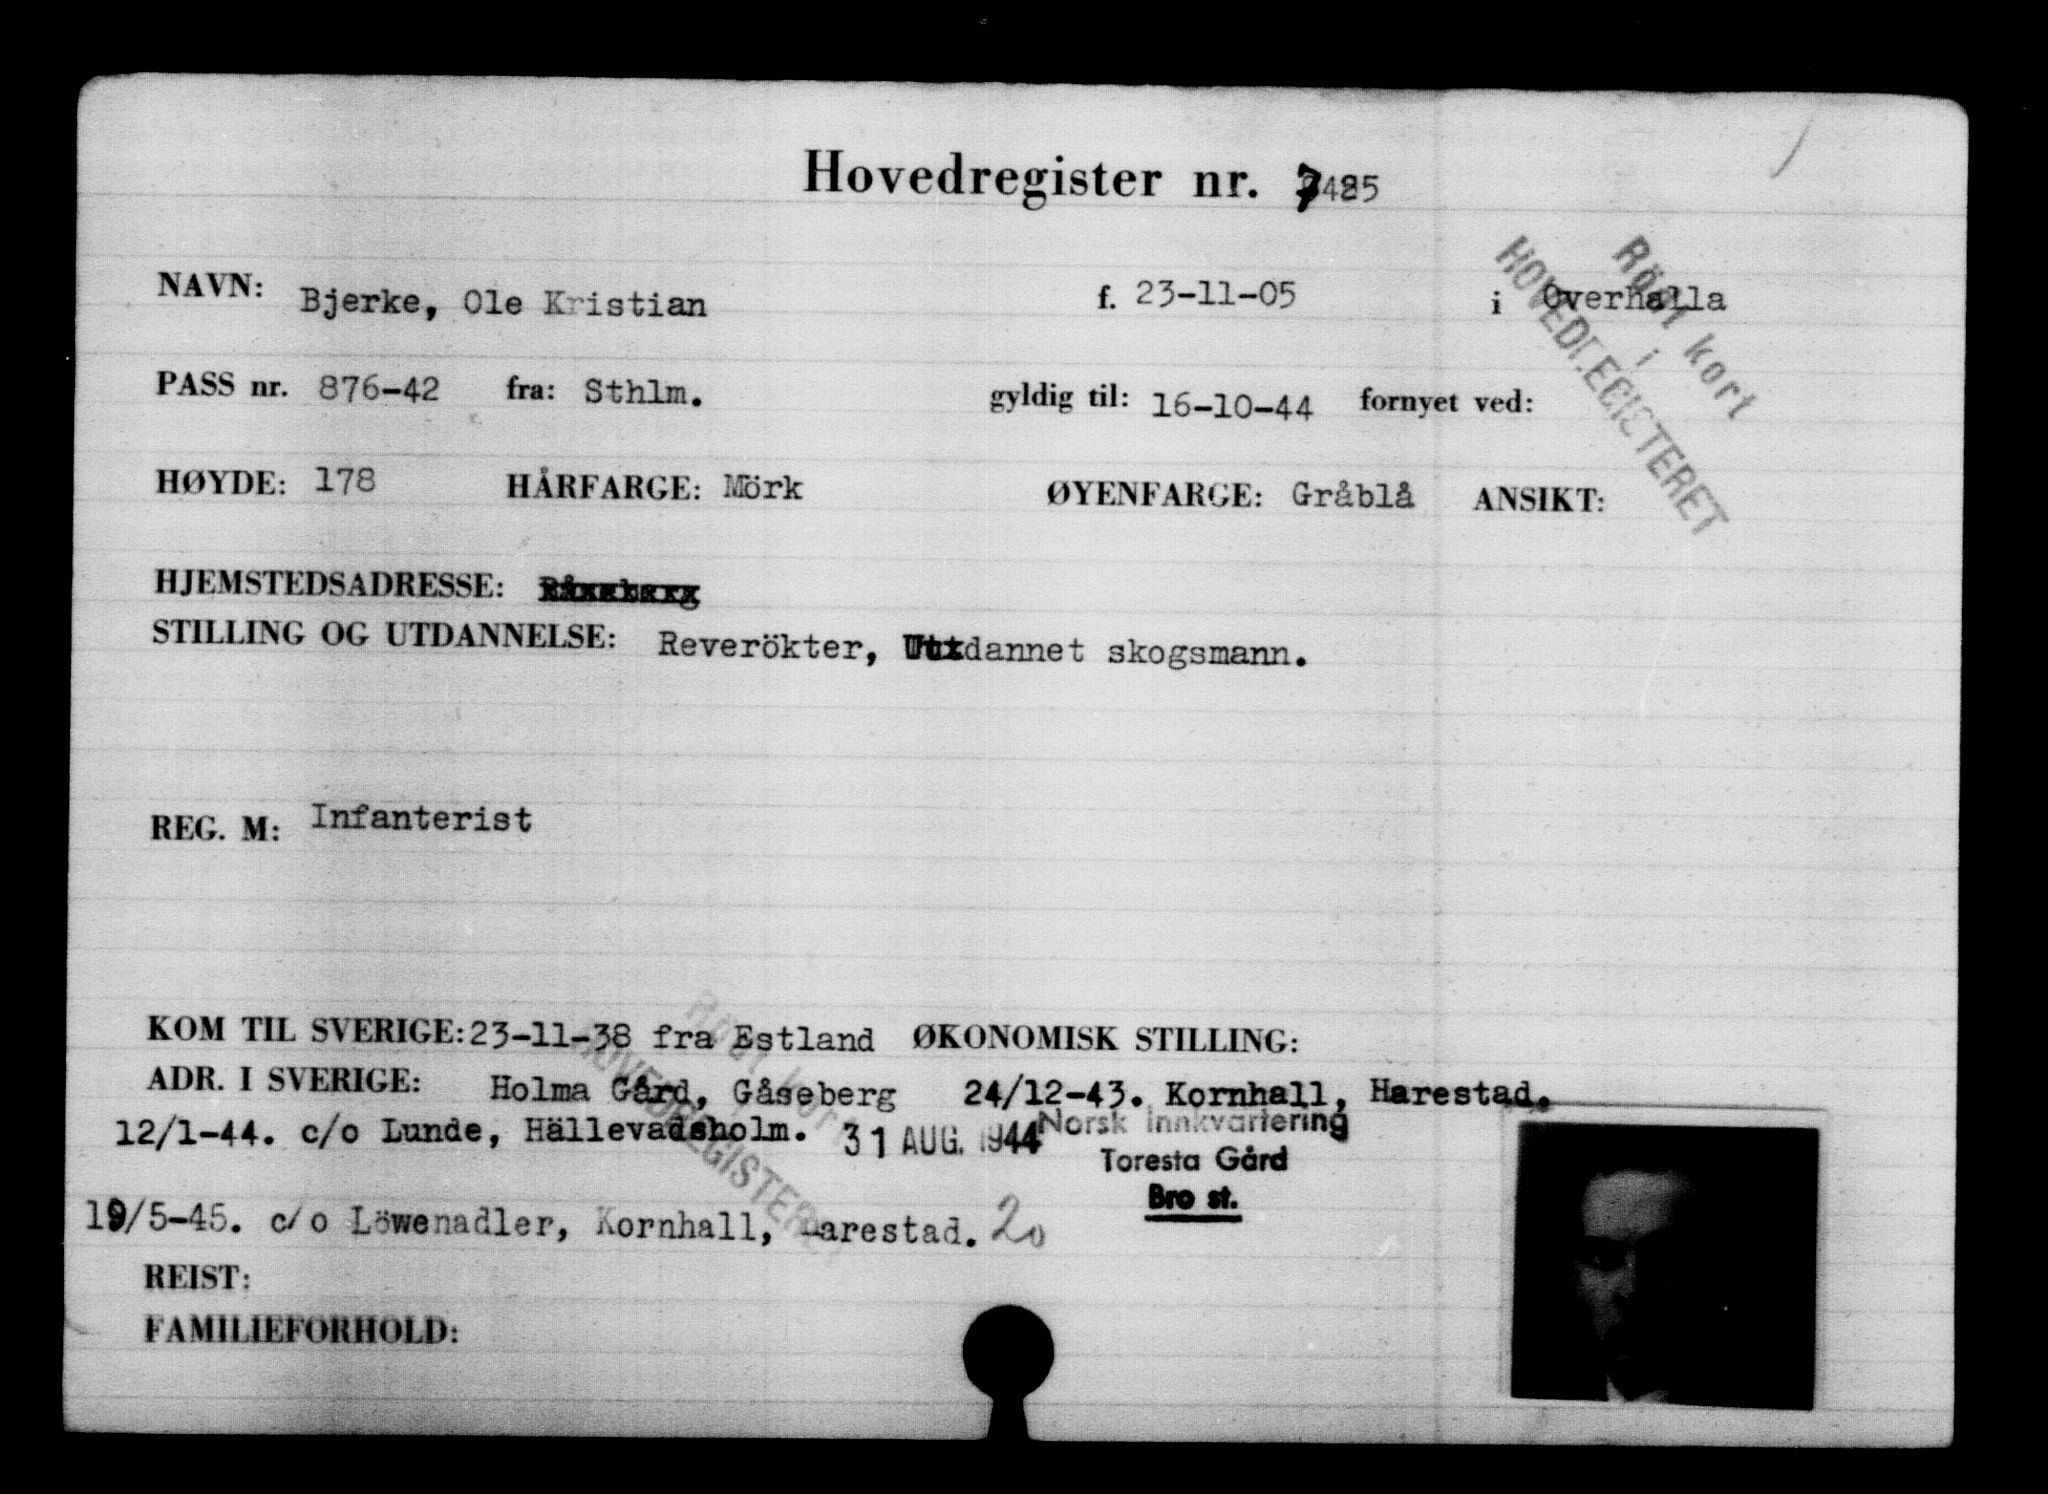 Hovedregister nr. 7485
NAVN: Bjerke, Ole Kristian f. 23-11-05 i Overhalla
Rödt kort
i
HOVEDREGISTERET
PASS nr. 876-42 fra: Sthlm. gyldig til: 16-10-44 fornyet ved:
HØYDE: 178 HÅRFARGE: Mörk ØYENFARGE: Gråblå ANSIKT:
HJEMSTEDSADRESSE:
STILLING OG UTDANNELSE: Reverökter, Utdannet skogsmann.
REG. M: Infanterist
KOM TIL SVERIGE: 23-11-38 fra Estland ØKONOMISK STILLING:
ADR. I SVERIGE: Holma Gård, Gåseberg 24/12-43. Kornhall, Harestad.
12/1-44. c/o Lunde, Hällevadsholm. 31 AUG. 1944 Norsk Innkvartering
Toresta Gård
Bro st.
Rödt kort
i
HOVEDREGISTERET
19/5-45. c/o Löwenadler, Kornhall, Harestad. 20
REIST:
FAMILIEFORHOLD: